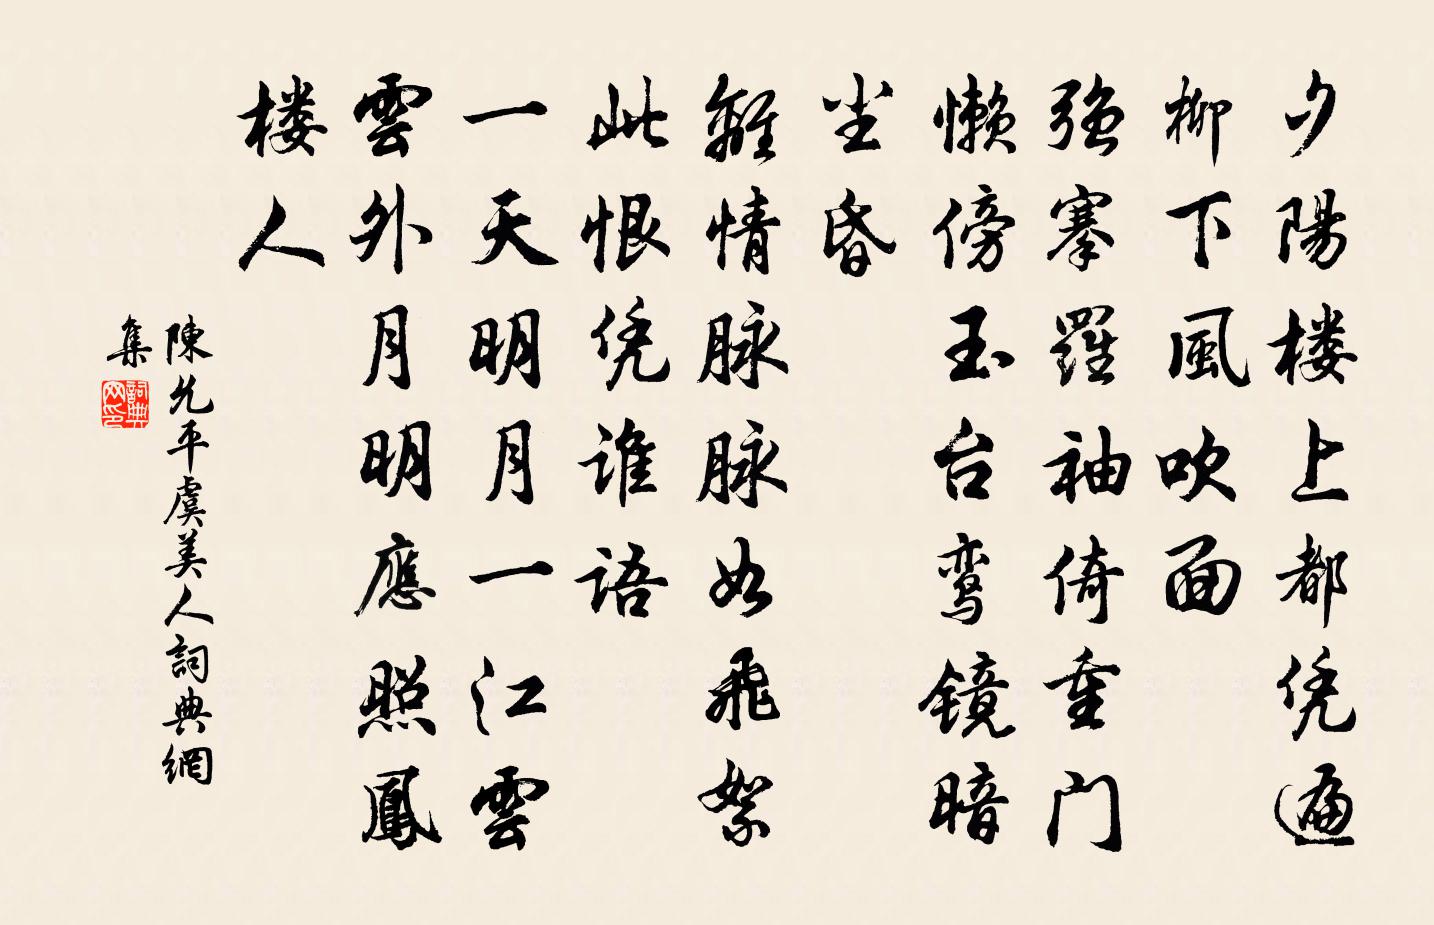 夕陽楼上都凭遍
柳下風吹面
強搴羅袖倚重门
懒傍玉台鸾镜暗
尘昏
離情脉脉如飛絮
此恨凭谁语
一天明月一江雲
雲外月明應照鳳
楼人
陳允平虞美人詞典網
集
詞典网印